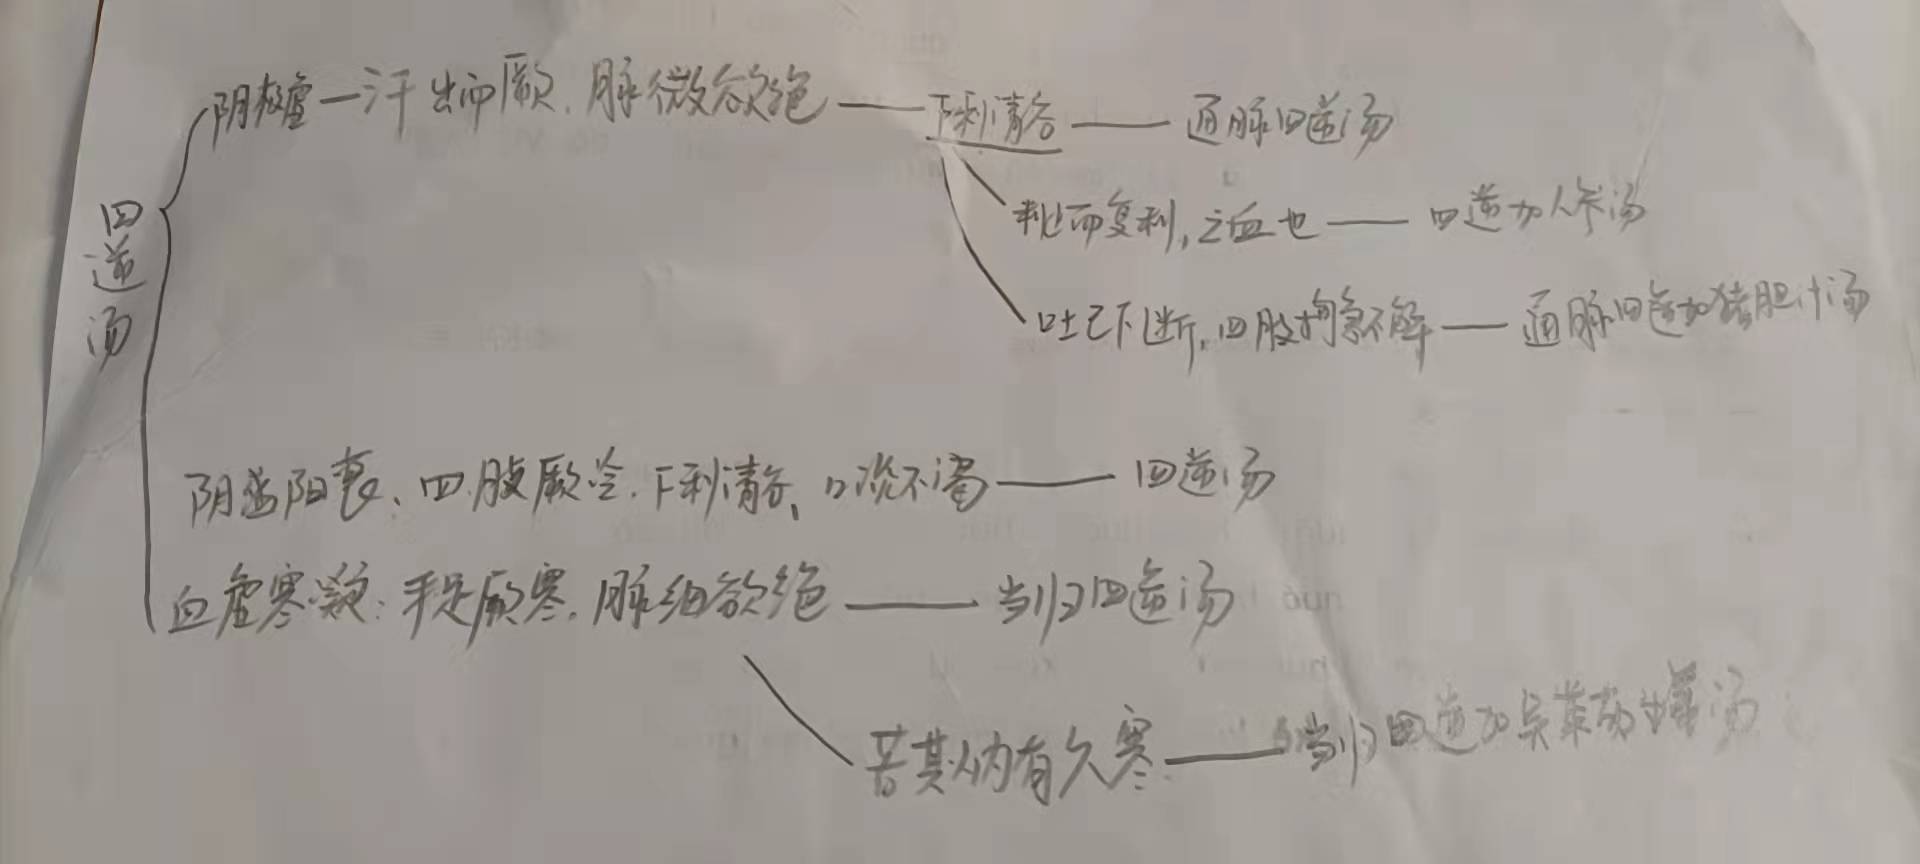 四逆汤
阴极虚一汗出而厥.脉微欲绝——下利清谷——通脉四逆汤
利止而复利,亡血也——四逆加人参汤
吐已下断.四肢拘急不解——通脉四逆加猪胆汁汤
阴盛阳衰、四肢厥冷.下利清谷、口淡不渴——四逆汤
血虚寒凝:手足厥寒.脉细欲绝——当归四逆汤
若其人内有久寒——当归四逆加吴茱萸生姜汤